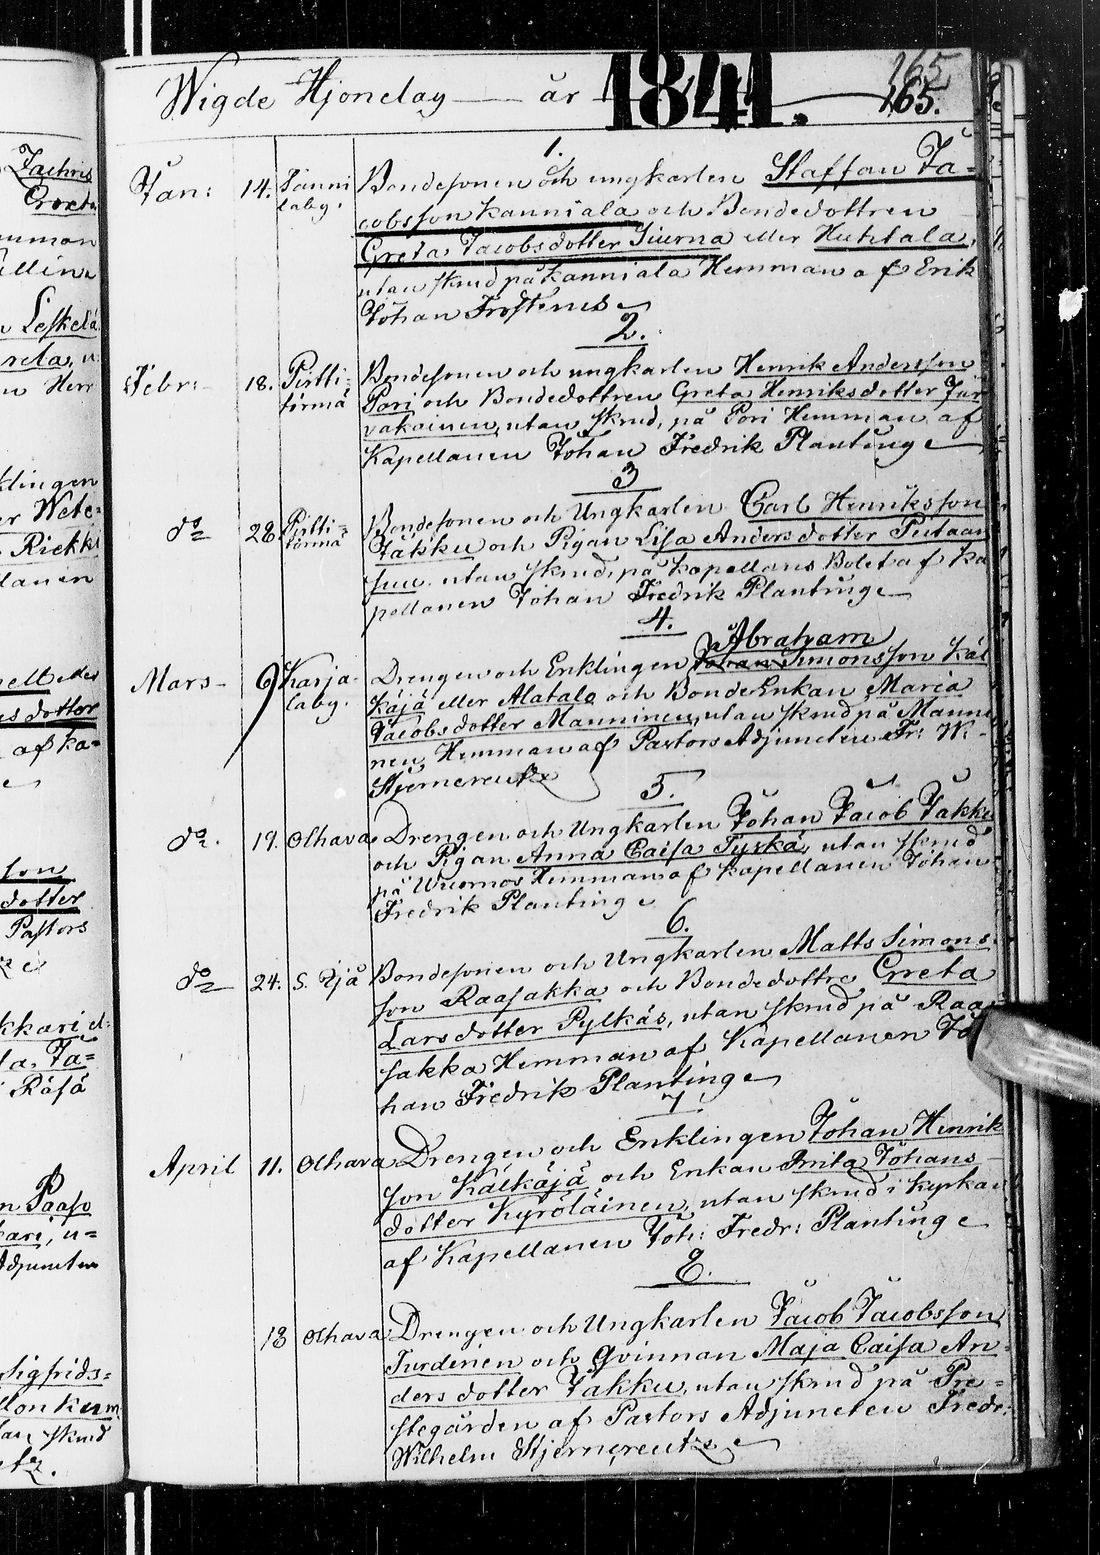 165
Wigde Hjonelag år 1841. 165.
1.
Jan: 14. Tanni laby. Bondesonen och ungkarlen Staffan Ja-
cobsson Kanniala och Bondedottren
Greta Jacobsdotter Siurna eller Huhtala,
utan skrud på Kanniala Hemman af Erik
Johan Frosterus
2.
Febr: 18. Pirtti-törmä Bondesonen och ungkarlen Henrik Andersson
Pori och Bondedottren Greta Henriksdotter Jur
vakainen, utan skrud, på Pori Hemman af
Kapellanen Johan Fredrik Planting
3
do 28. Pirtti-törmä Bondesonen och Ungkarlen Carl Henriksson
Jakku och Pigan Lisa Andersdotter Piitaan
suu utan skrud, på Kapellans Bolet af Ka
pellanen Johan Fredrik Planting
4.
Abraham
Mars 9 Karja-laby. Drengen och Enklingen Johan Simonsson Käl
käjä eller Alatalo och BondeEnkan Maria
Jacobsdotter Manninen, utan skrud på Manni
nen Hemman af Pastors Adjuncten Fr: W.
Stjerncreutz
5.
do. 19. Olhava Drengen och Ungkarlen Johan Jacob Jakku
och Pigan Anna Caisa Tyskä, utan skrud
på Wuornos Hemman af Kapellanen Johan
Fredrik Planting
6.
do 24. S. Ijå Bondesonen och Ungkarlen Matts Simons-
son Raasakka och Bondedottre Greta
Larsdotter Pylkäs, utan skrud på Raa
sakka Hemman af Kapellanen Jo
han Fredrik Planting
7
April 11. Olhava Drengen och Enklingen Johan Henrik
son Kälkäjä och Enkan Brita Johans-
dotter Kyröläinen, utan skrud i kyrkan
af Kapellanen Joh: Fredr: Planting
8.
13 Olhava Drengen och Ungkarlen Jacob Jacobsson
Turdenen och Qvinnan Maja Caisa An-
dersdotter Jakku, utan skrud på Pre-
stegården af Pastors Adjuncten Fredr:
Wilhelm Stjerncreutz